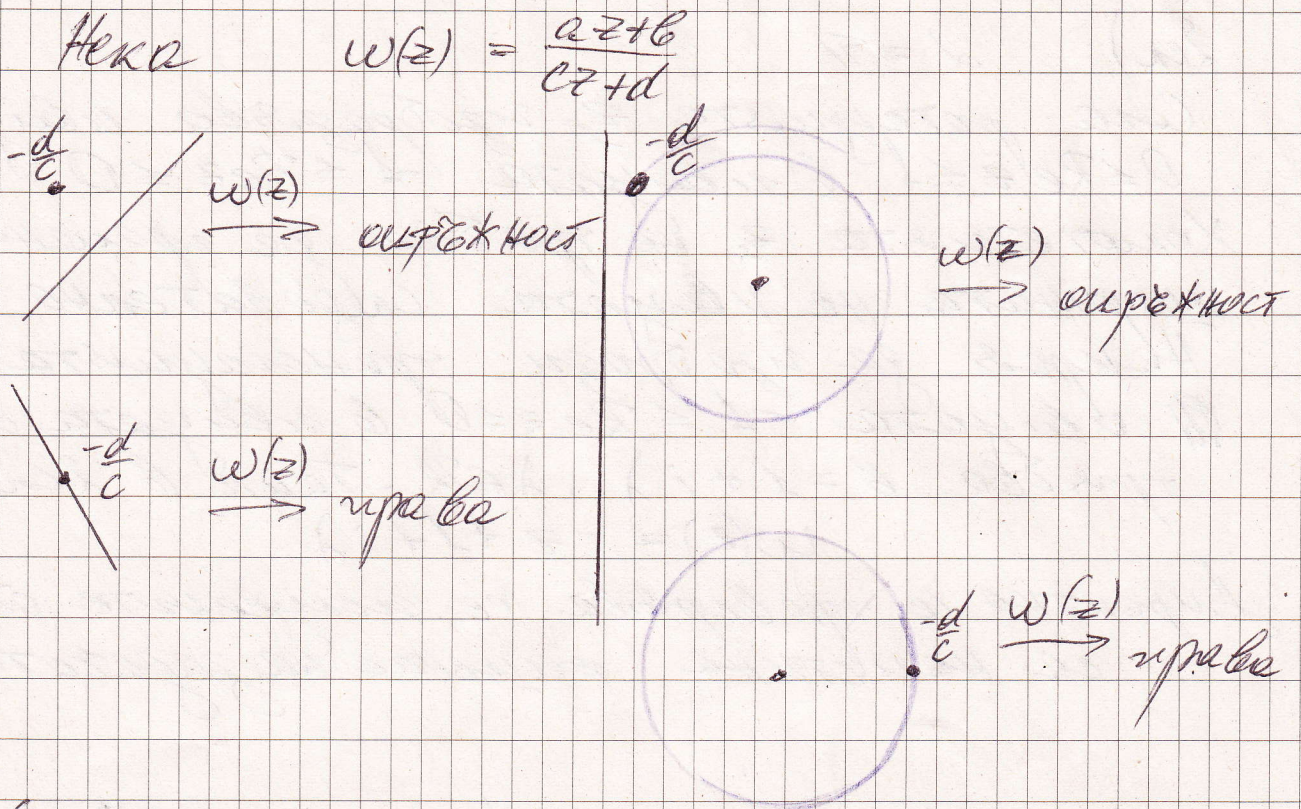 Нека w(z) = \frac{az+b}{cz+d}
-\frac{d}{c}
w(z)
окръжност
-\frac{d}{c}
w(z)
права
-\frac{d}{c}
w(z)
окръжност
-\frac{d}{c}
w(z)
права